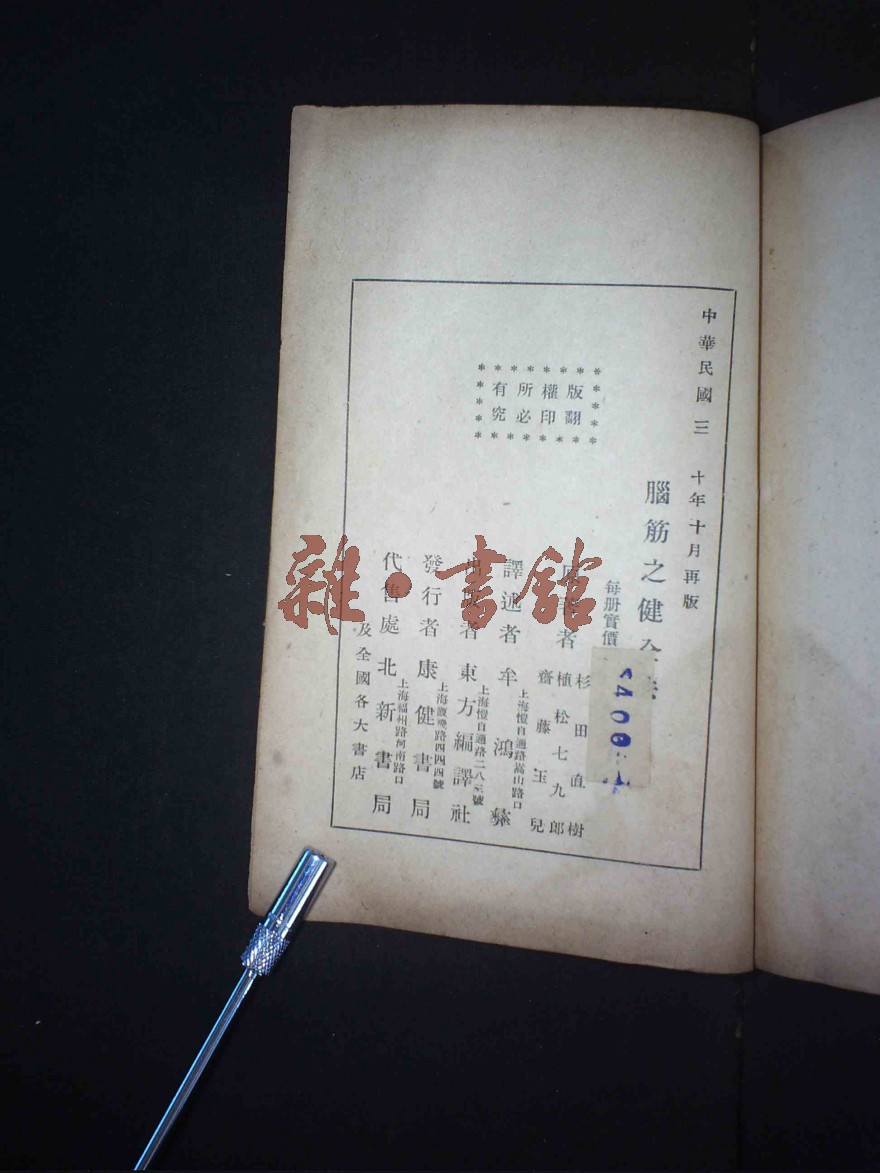 中華民國三十年十月再版
腦筋之健全
每册實價
杉田直樹
植松七九郎
齋藤玉兒
者
譯述者牟鴻彝
上海愷自邇路嵩山路口
者東方編譯社
上海愷自邇路二八三號
發行者康健書局
上海路四四四號
代售處北新書局
上海福州路河南路口
及全國各大書店
版權所有
翻印必究
雜·書館